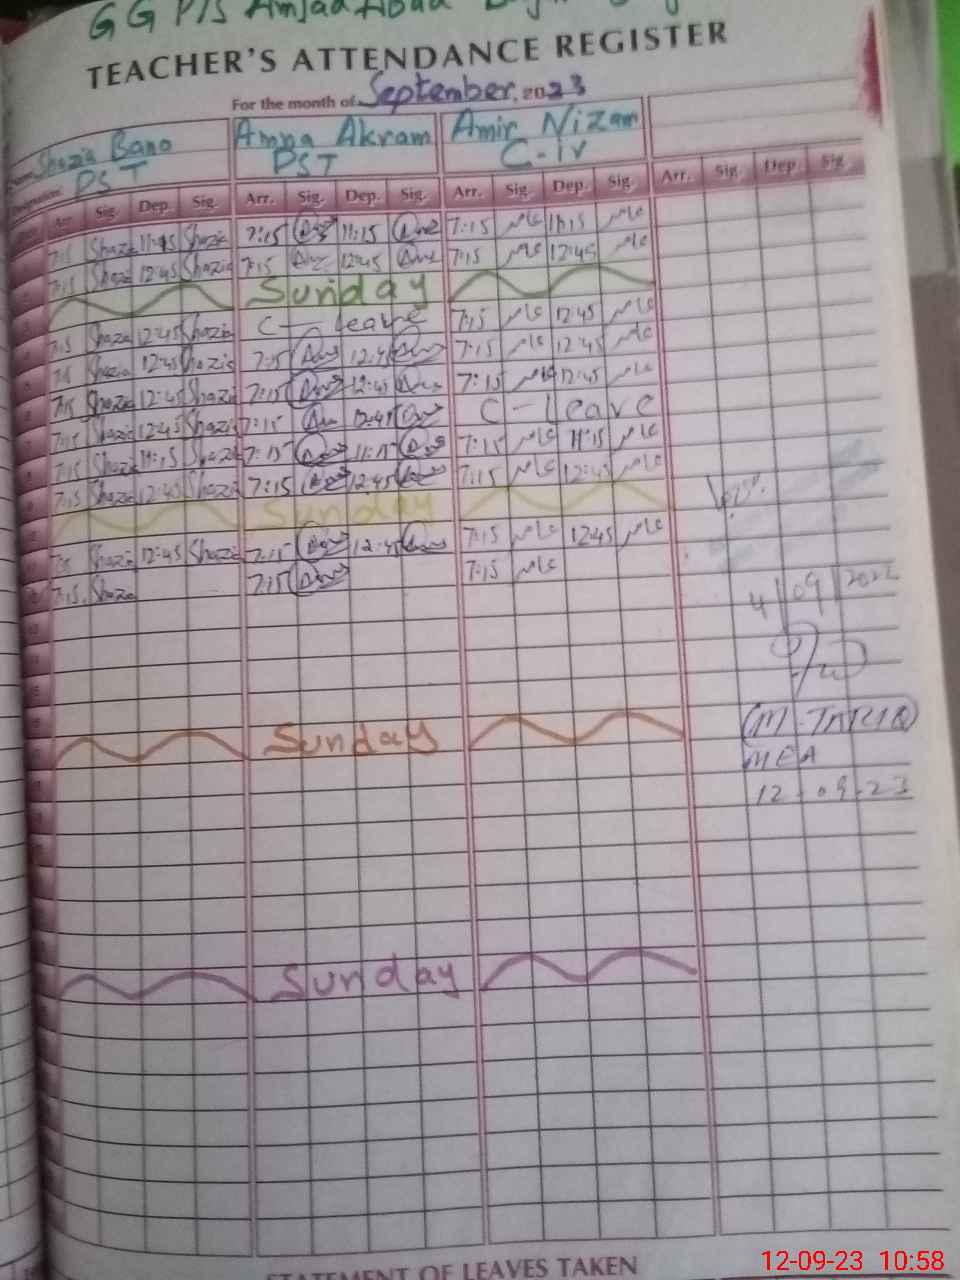 GG P/S Amjad Abad
TEACHER'S ATTENDANCE REGISTER
For the month of September, 2023
Name Shazia Bano Amna Akram Amir Nizam
Designation PST PST C-iv
Arr. Sig. Dep. Sig. Arr. Sig. Dep. Sig. Arr. Sig. Dep. Sig. Arr. Sig. Dep. Sig.
7:15 Shazia 11:15 Shazia 7:15 11:15 7:15 عامر 11:15 عامر
7:15 Shazia 12:45 Shazia 7:15 12:45 7:15 عامر 12:45 عامر
Sunday
7:15 Shazia 12:45 Shazia C- leave 7:15 عامر 12:45 عامر
7:15 Shazia 12:45 Shazia 7:15 12:45 7:15 عامر 12:45 عامر
7:15 Shazia 12:45 Shazia 7:15 12:45 7:15 عامر 12:45 عامر
7:15 Shazia 12:45 Shazia 7:15 12:45 C-leave
7:15 Shazia 11:15 Shazia 7:15 11:15 7:15 عامر 11:15 عامر
7:15 Shazia 12:45 Shazia 7:15 12:45 7:15 عامر 12:45 عامر
Sunday
7:15 Shazia 12:45 Shazia 7:15 12:45 7:15 عامر 12:45 عامر
7:15 Shazia 7:15 7:15 عامر
4/09/202
Sunday
(M-TARIQ)
MEA
12-09-23
Sunday
STATEMENT OF LEAVES TAKEN
12-09-23 10:58